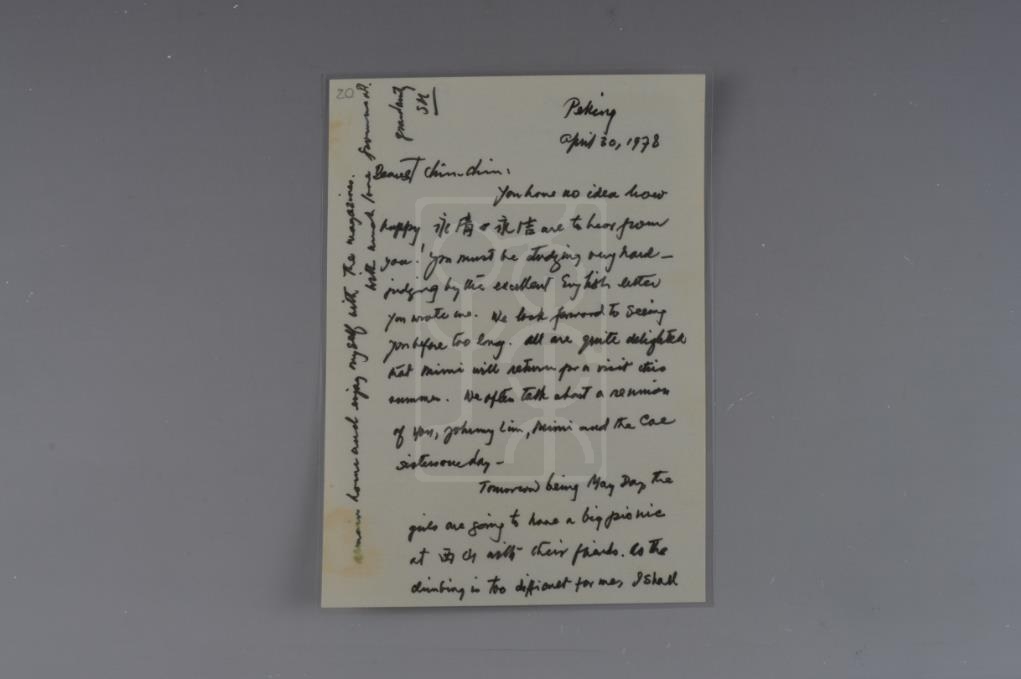 20
Peking
April 30, 1978
Dearest Chin-Chin,
You have no idea how
happy 永清 & 永洁 are to hear from
you! You must be studying very hard –
judging by the excellent English letter
you wrote me. We look forward to seeing
you before too long. All are quite delighted
that Mimi will return for a visit this
summer. We often talk about a reunion
of you, Johnny Lim, Mimi and the Cae
sisters one day –
Tomorrow being May Day the
girls are going to have a big picnic
at 西山 with their friends. As the
climbing is too difficult for me, I shall
remain home and enjoy myself with the magazines.
With much love from
grandaunt
SM